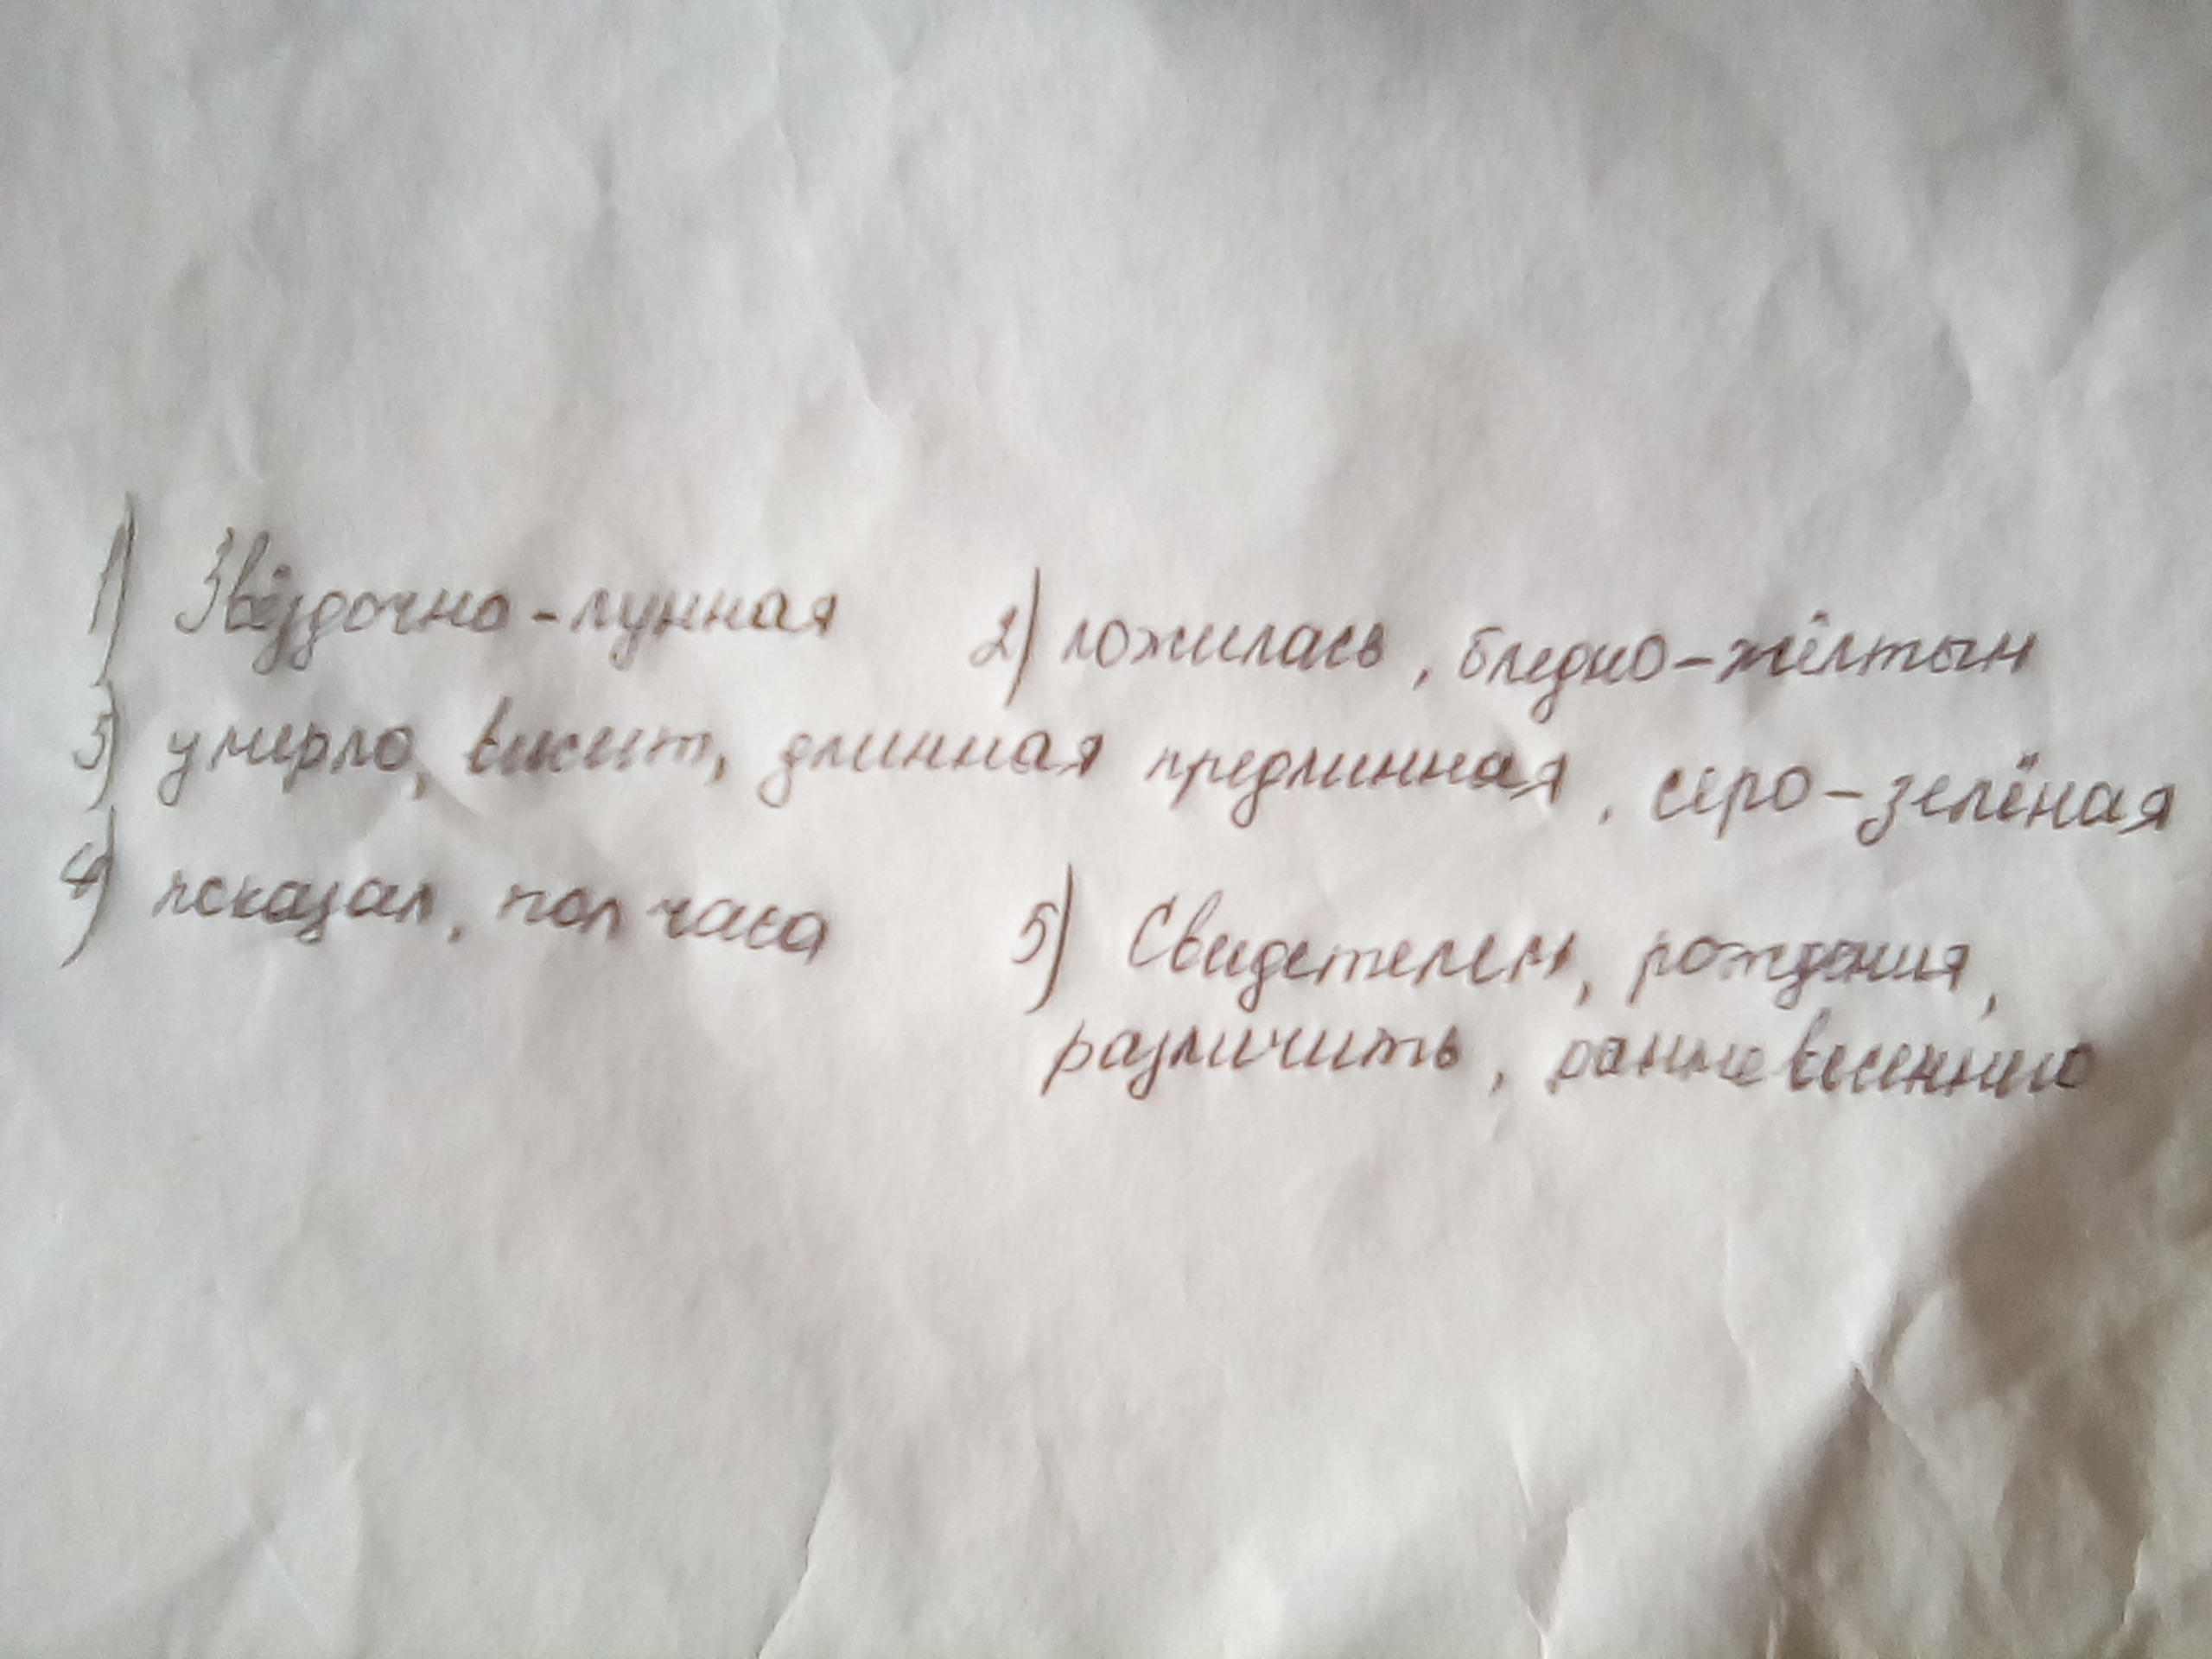 1) Звёздочно-лунная 2) ложилась, бледно-жёлтым
3) умерло, висит, длинная предлинная, серо-зелёная
4) показал, пол часа 5) Свидетелем, рождения,
различить, ранне весеннего